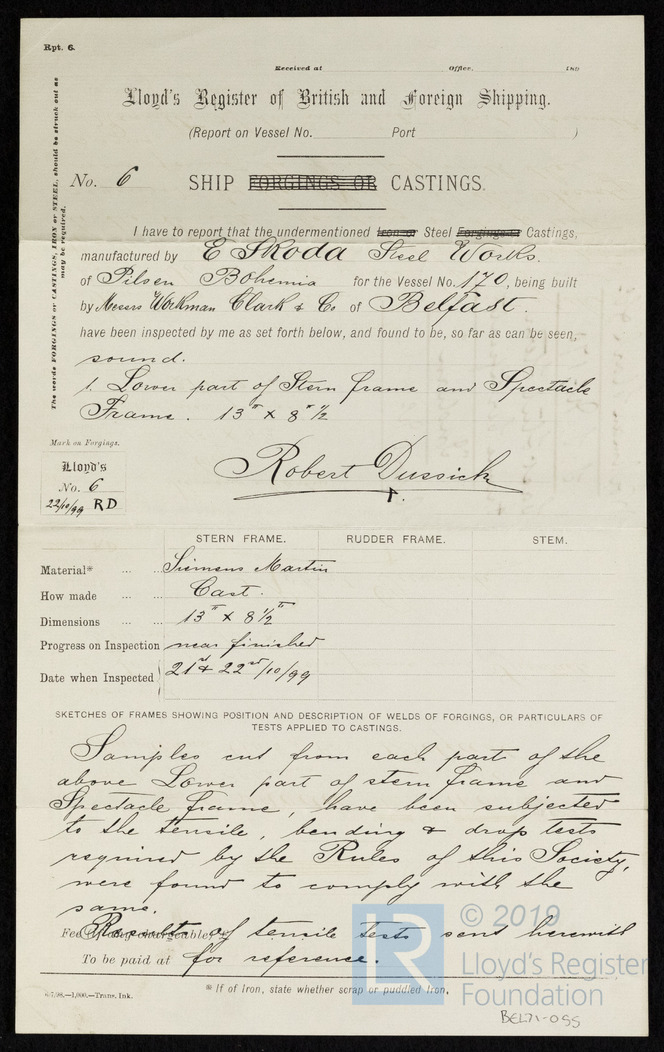 Rpt. 6.
Received at Office, 189
Lloyd's Register of British and Foreign Shipping.
(Report on Vessel No. Port )
No. 6 SHIP FORGINGS OR CASTINGS.
The words FORGINGS or CASTINGS, IRON or STEEL, should be struck out as
may be required.
I have to report that the undermentioned Iron or Steel Forgings or Castings,
manufactured by E Skoda Steel Works.
of Pilsen Bohemia for the Vessel No. 170, being built
by Messrs Workman Clark & Co of Belfast.
have been inspected by me as set forth below, and found to be, so far as can be seen,
sound.
1. Lower part of Stern frame and Spectacle
Frame. 13" x 8" ½
Mark on Forgings.
Lloyd's
No. 6
22/10/99 RD
Robert Dussick
STERN FRAME. RUDDER FRAME. STEM.
Material* ... ... Siemens Martin
How made ... Cast.
Dimensions ... ... 13" x 8½"
Progress on Inspection near finished
Date when Inspected 21st & 22nd/10/99
SKETCHES OF FRAMES SHOWING POSITION AND DESCRIPTION OF WELDS OF FORGINGS, OR PARTICULARS OF
TESTS APPLIED TO CASTINGS.
Samples cut from each part of the
above Lower part of stern frame and
Spectacle frame, have been subjected
to the tensile, bending & drop tests
required by the Rules of this Society,
were found to comply with the
same.
Fee (if any chargeable) £
Results of tensile tests sent herewith
To be paid at for reference.
* If of Iron, state whether scrap or puddled Iron.
6/7/98.—1,000.—Trans. Ink.
© 2019
LR
Lloyd's Register
Foundation
BEL71-055